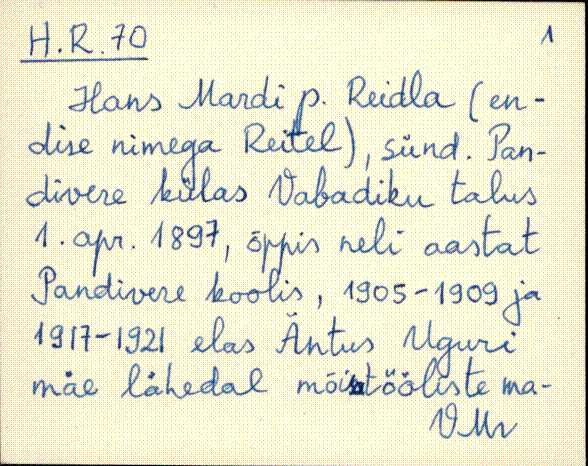 H.R. 70 1
Hans Mardi p. Reidla (en-
dise nimega Reitel), sünd. Pan-
divere külas Vabadiku talus
1. apr. 1897, õppis neli aastat
Pandivere koolis, 1905-1909 ja
1917-1921 elas Äntus Uguri
mäe lähedal mõistööliste ma-
VMr